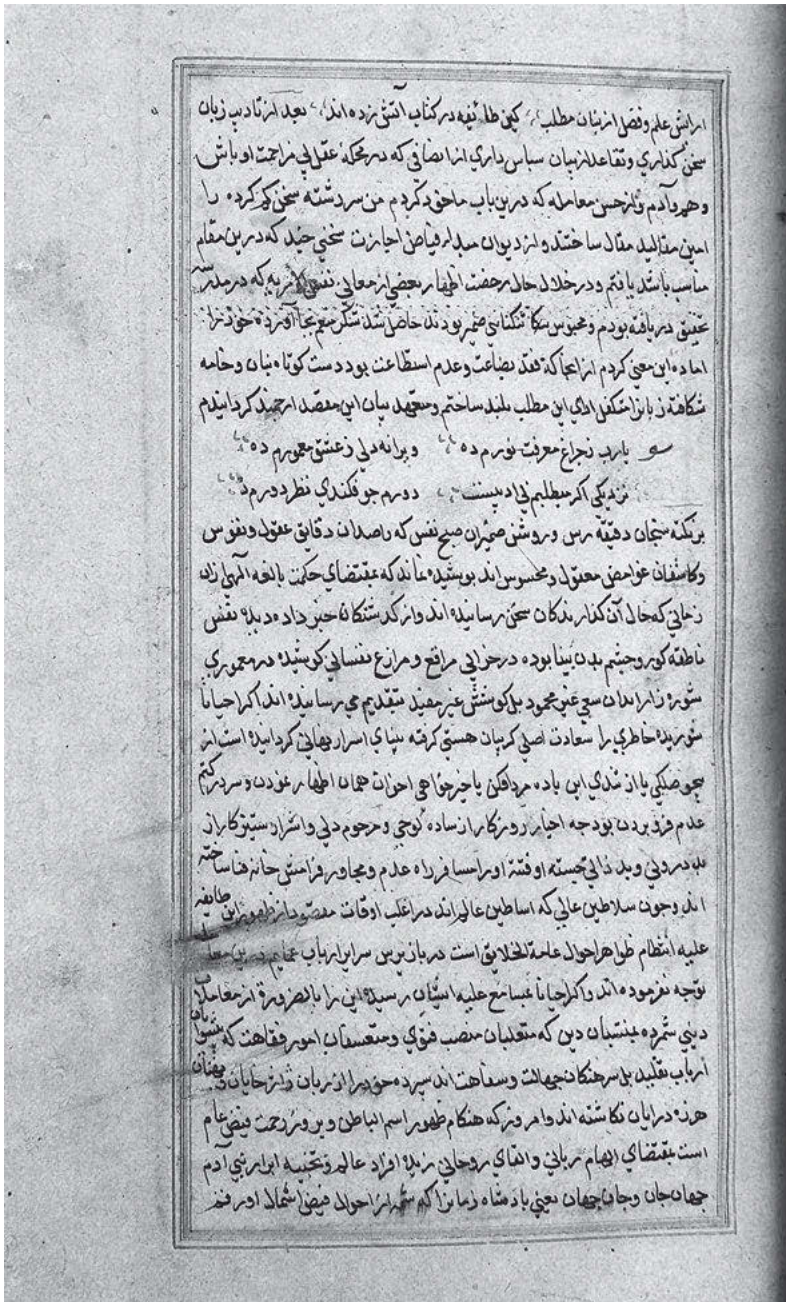 ارایش علم وفضل از بیان مطلب کین طائفه در کتاب آتش زده اند بعد از تادیب زبان
سخن گذاری وتقاعد از بیان سپاس داری از انصافی که در محکمه عقل بی مزاحمت اوباش
وهم دادم واز حسن معامله که درین باب با خود کردم من سر رشته سخن گم کرده را
امین مقالید مقال ساختند و از دیوان مبدا فیاض اجازت سخنی چند که درین مقام
مناسب باشد یافتم و در خلال حال رخصت اظهار بعضی از معانی نفس الامریه که در مدرسه
تحقیق دریافته بودم و محبوس تنکنای ضمیر بودند حاصل شد شکر منعم بجا آورده خود را
اماده این معنی کردم از انجا که فقد بضاعت وعدم استطاعت بود دست کوتاه بنان وخامه
شکافته زبانرا متکفل ادای این مطلب بلند ساختم ومتعهد بیان این مقصد ارجمند کردانیدم
یارب ز چراغ معرفت نورم ده ویرانه دلی ز عشق معمورم ده
نزدیکی اکر میطلبم بی ادبیست دورم چو فکندی نظر دورم ده
بر نکته سنجان دقیقه رس و روشن ضمیران صبح نفس که راصدان دقایق عقول ونفوس
وکاشفان غوامض معقول ومحسوس اند پوشیده نماند که بمقتضای حکمت بالغه الهی از ان
زمانی که حال آن کذارندکان سخن رسانیده اند واز کذشتکان خبر داده دیده نفس
ناطقه کور وچشم بدن بینا بوده در خرابی مراقع و مزارع نفسانی کوشیده در معموری
شوره زار ابدان سعی غیر محمود بل کوشش غیر مفید بتقدیم می رسانیده اند اکر احیانا
شوریده خاطری را سعادت اصلی کریبان هستی کرفته بینای اسرار نهانی کردانیده است از
بیحوصلکی یا از تندی این باده مردافکن یا خیرخواهی اخوان همان اظهار نمودن وسر در کتم
عدم فرو بردن بود چه اخیار روزکار از ساده لوحی و مرحوم دلی واشرار ستیزکار از
بد درونی وبد ذاتی جسته او فتنه او را مسافر راه عدم و مجاور فرامش خانه فنا ساخته
اند وچون سلاطین عالی که اساطین عالم اند در اغلب اوقات مقصود از ظهور این طایفه
علیه انتظام ظواهر احوال عامة الخلایق است در بازپرس سرایر ارباب عمایم درین
توجه نفرموده اند واکر احیانا بمسامع علیه ایشان رسیده این را بالضرورة از معاملات
دینی شمرده بمفتیان دین که متغلبان منصب فتوی ومتعسفان امور فقاهت که پیشوایان
ارباب تقلید بل سرهنکان جهالت وسفاهت اند سپرده خود را از زیان
هرزه درایان نکاشته اند وامروز که هنکام ظهور اسم الباطن وبروز رحمت فیض عام
است بمقتضای الهام ربانی والقای روحانی زبده افراد عالم ونخبه ابرار بنی آدم
جهان جان وجان جهان یعنی بادشاه زمانرا که شمه از احوال فیض اشمال او رقم